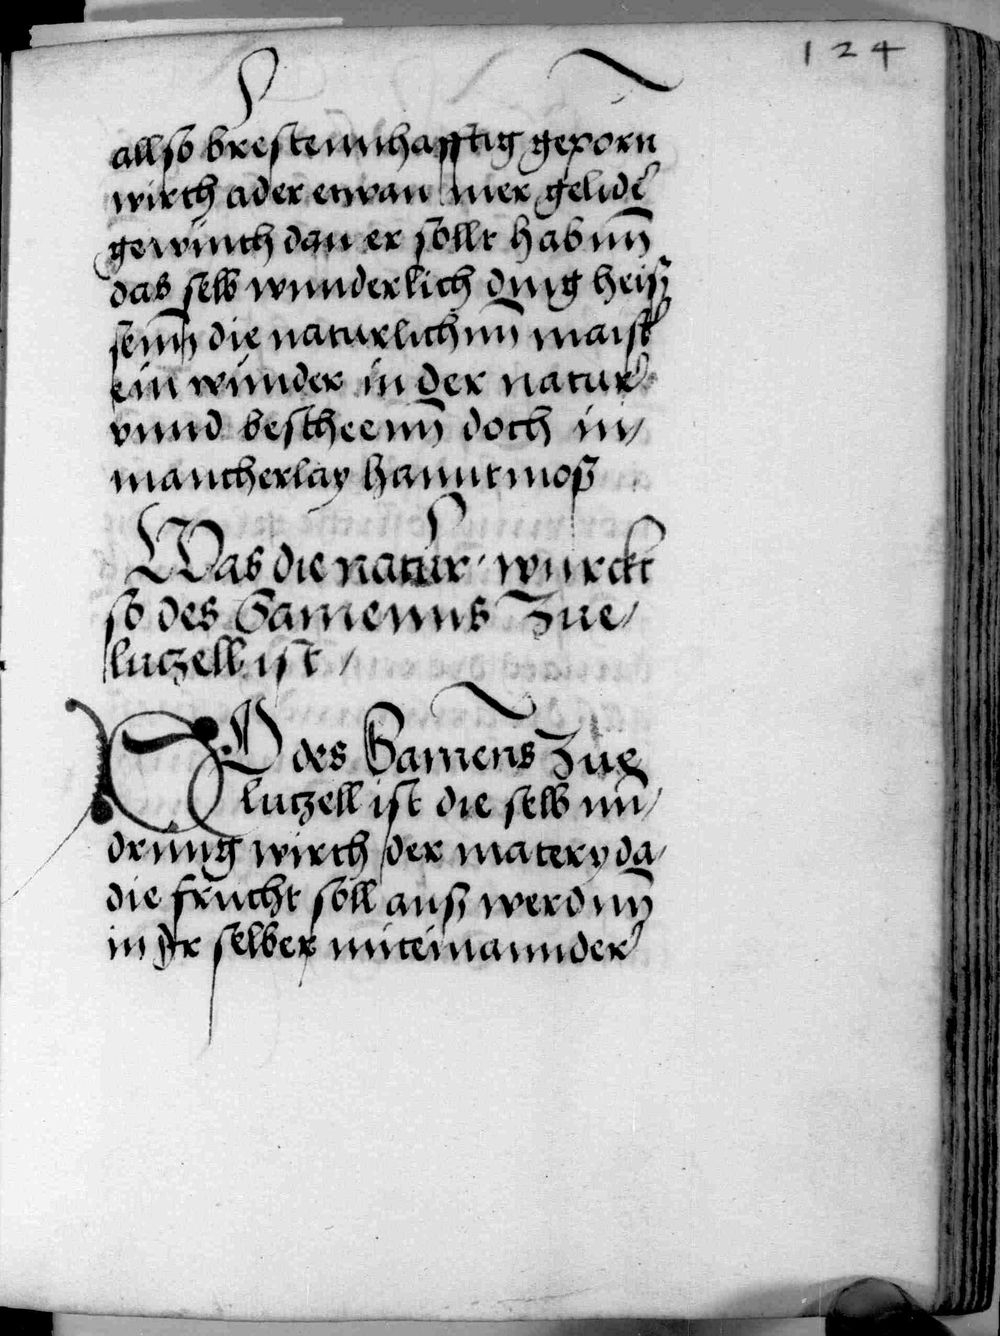 124
allso brestennhafftig geporn
wirth ader etwan mer gelider
gewinth dan er sollt habnn̄
das selb wunderlich ding heiß
senn̄ die naturlichnn̄ maister
ein wunder in der natur
vnnd bescheenn̄ doch in/
mancherlay hanntmoß
Was die natur würckt
so des Samenns Zue/
lutzell ist /
SO des Samens Zue
lutzell ist die selb mn̄/
drung wirth der matery da/
die frucht soll auß werdnn̄
in Jr selber miteinannder